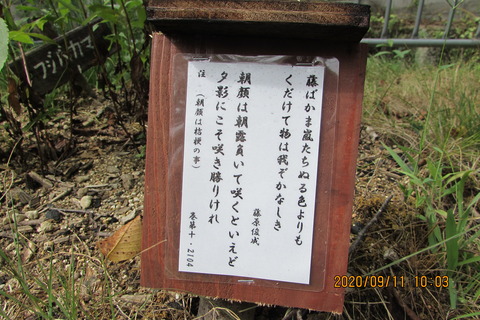 フジバカマ
藤ばかま嵐たちぬる色よりも
くだけて物は我ぞかなしき
藤原俊成
朝顔は朝露負いて咲くといえど
夕影にこそ咲き勝りけれ
巻第十・2104
注：（朝顔は桔梗の事）
2020/09/11 10:03